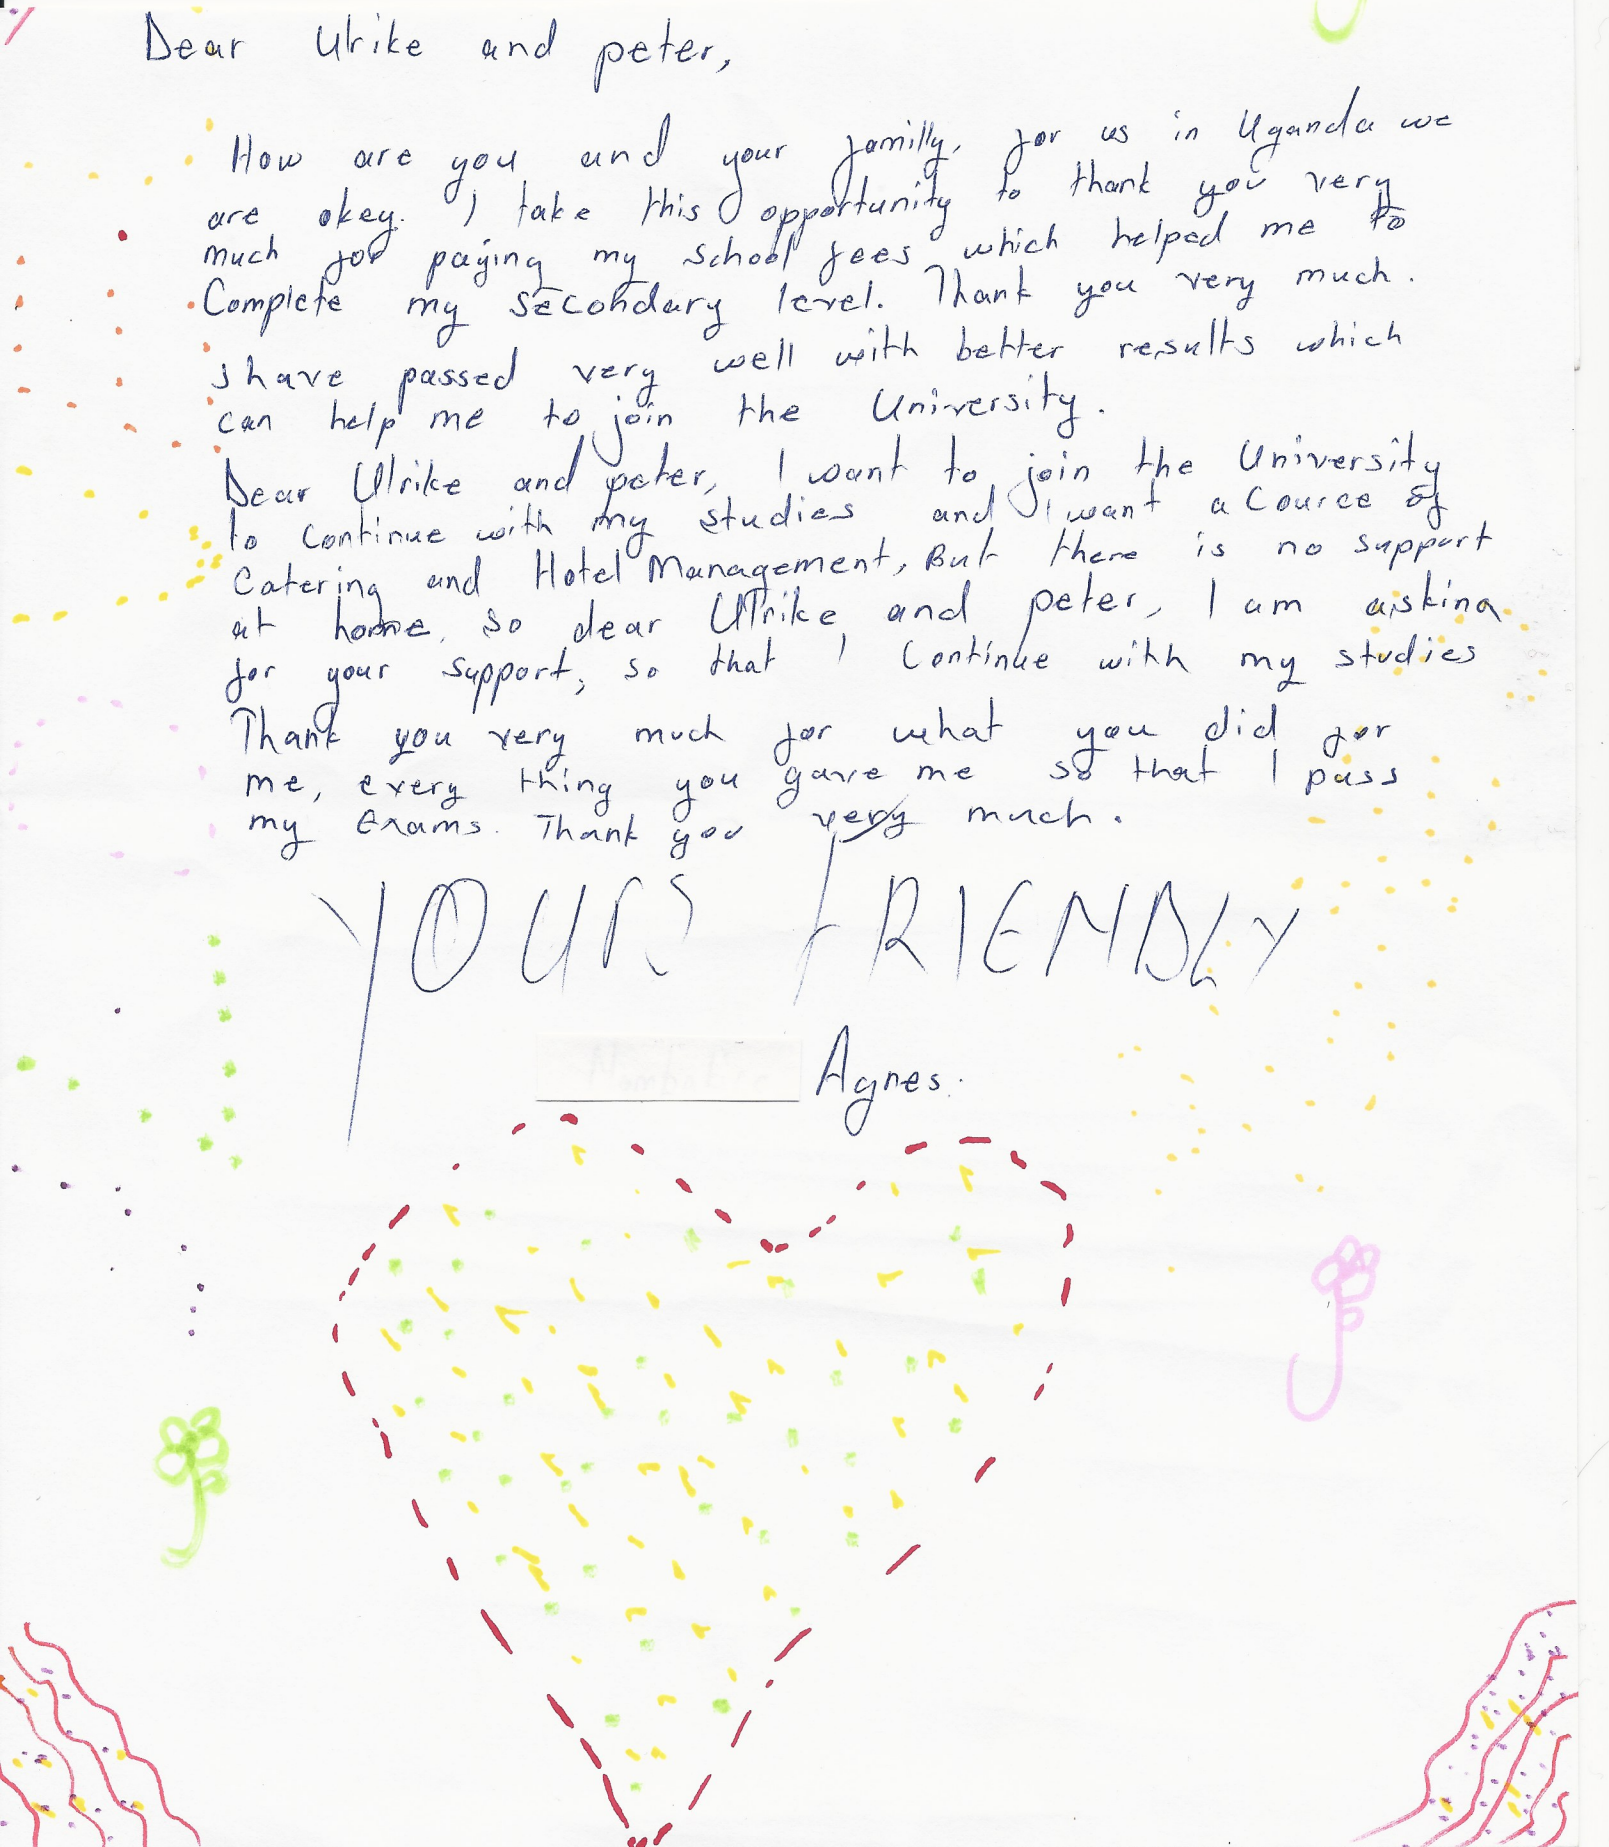 Dear Ulrike and peter,
How are you and your familly, for us in Uganda we
are okey. I take this opportunity to thank you very
much for paying my school fees which helped me to
Complete my secondary level. Thank you very much.
I have passed very well with better results which
can help me to join the University.
Dear Ulrike and peter, I want to join the University
to continue with my studies and I want a Cource of
Catering and Hotel Management, But there is no support
at home, so dear Ulrike and peter, I am asking
for your support, so that I Continue with my studies
Thank you very much for what you did for
me, every thing you gave me so that I pass
my Exams. Thank you very much.
YOURS FRIENDLY
Agnes.